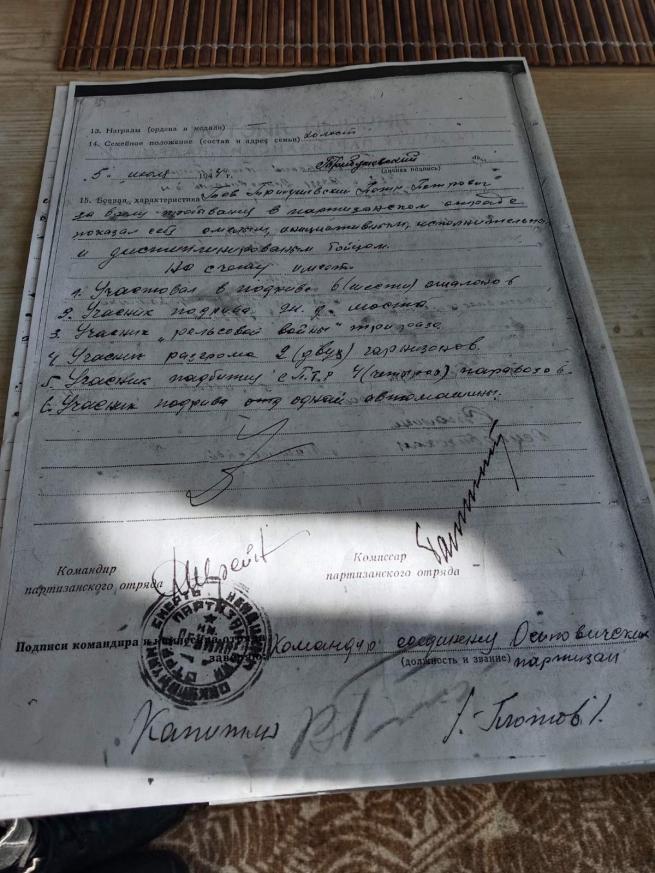 13. Награды (ордена и медали) —
14. Семейное положение (состав и адрес семьи) холост
5 " июля 194 г. Трибушевский
(личная подпись)
15. Боевая характеристика Тов Трибушевский Петрович
за время пребывания в партизанском отряде
показал себя смелым, инициативным, исполнительным
и дисциплинированым бойцом.
На счету имеет:
1. Участвовал в подриве 6 (шести) эшалонов
2. Учасник подрива ж. д. моста.
3. Учасник „рельсовой войны" три раза
4. Учасник разгрома 2 (двух) гарнизонов.
5. Учасник падбитии с П.Т.Р 4 (четырех) паравозов.
6. Учасник подрива одной автомашины.
Командир
партизанского отряда
Комиссар
партизанского отряда
СМЕРТЬ НЕМЕЦКИМ ОККУПАНТАМ
Подписи командира и комиссара отряда
заверяю: Командир соединени Осиповических
(должность и звание) партизан
Капитан /-Плотов/.